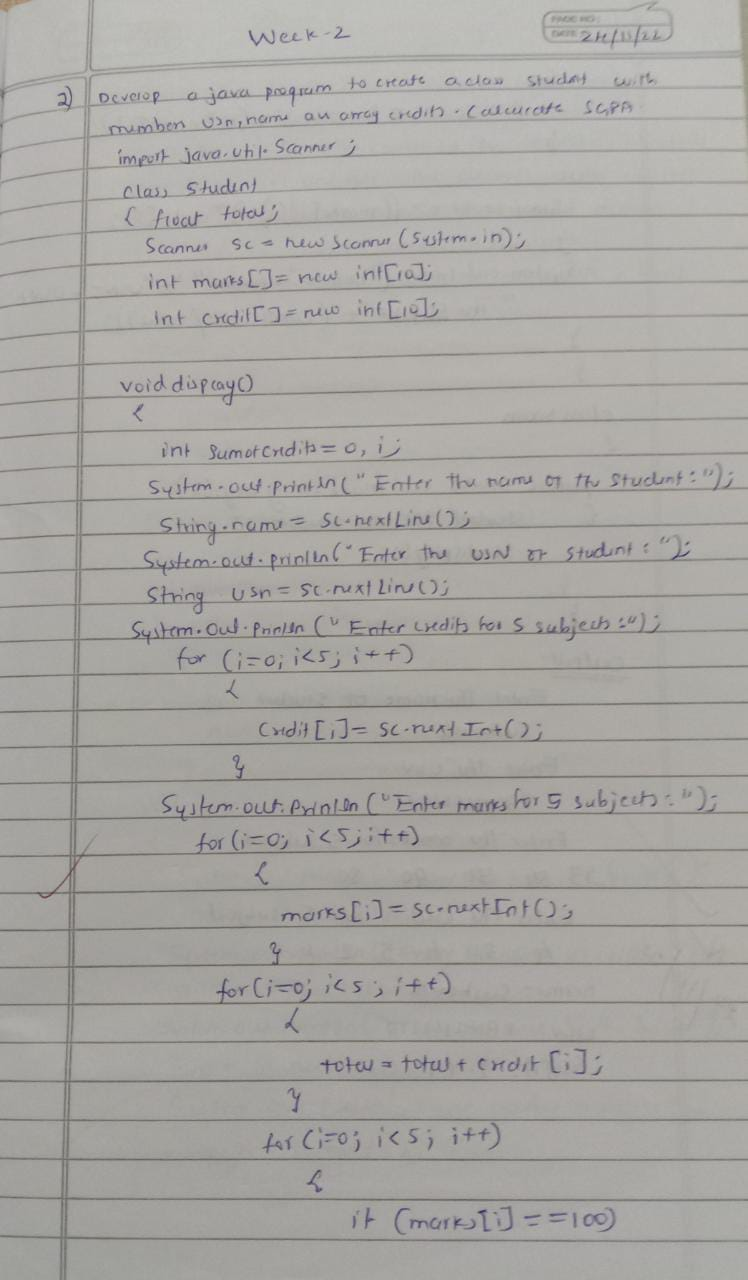 Week-2
PAGE NO:
DATE: 24/11/22
2) Develop a java program to create a class student with
members usn, name an array credits. Calculate SGPA.
import java.util.Scanner;
class Student
{ float total;
Scanner sc = new Scanner(System.in);
int marks[]= new int[10];
int credit[]= new int[10];
void display()
{
int Sumofcredits = 0, i;
System.out.println(" Enter the name of the student: ");
String.name = sc.nextLine();
System.out.println("Enter the USN of student: ");
String usn = sc.nextLine();
System.out.println (" Enter credits for 5 subjects:");
for (i=0; i<5; i++)
{
Credit[i]= sc.next Int();
}
System.out.println ("Enter marks for 5 subjects: ");
for(i=0; i<5; i++)
{
marks[i]= sc.nextInt();
}
for(i=0; i<5; i++)
{
total = total + credit [i];
}
for (i=0; i<5; i++)
{
if (marks[i] ==100)